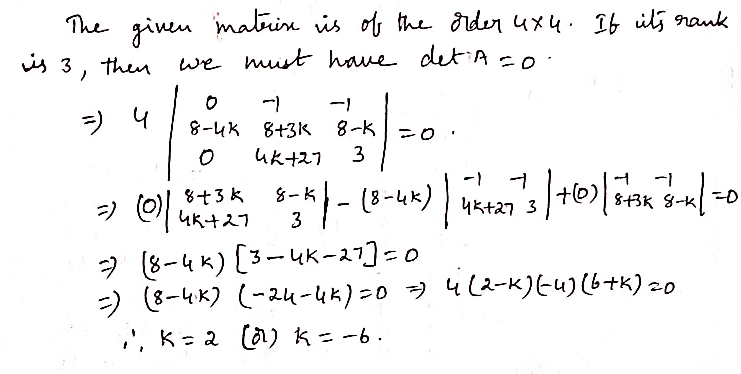 The given matrix is of the order 4x4. If its rank
is 3, then we must have det A = 0.
=> 4 | 0 -1 -1 |
| 8-4K 8+3K 8-K | = 0.
| 0 4K+27 3 |
=> (0) | 8+3K 8-K ; 4K+27 3 | - (8-4K) | -1 -1 ; 4K+27 3 | + (0) | -1 -1 ; 8+3K 8-K | = 0
=> (8-4K) [3-4K-27] = 0
=> (8-4K) (-24-4K) = 0 => 4(2-K)(-4)(6+K) = 0
∴, K = 2 (or) K = -6.